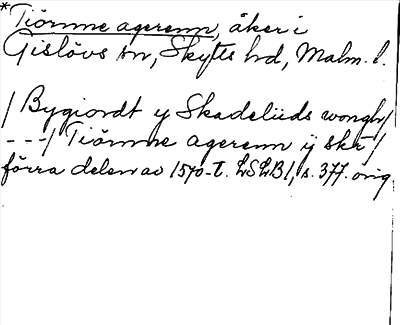 *Tiörnne agerenn, åker i
Gislövs sn, Skytts hd, Malm. l.
/ Bygiordt y Skadeliids wongh /
- - - / Tiörnne agerenn ÿ skr /
förra delen av 1570-t. LSLB 1, s. 377. orig